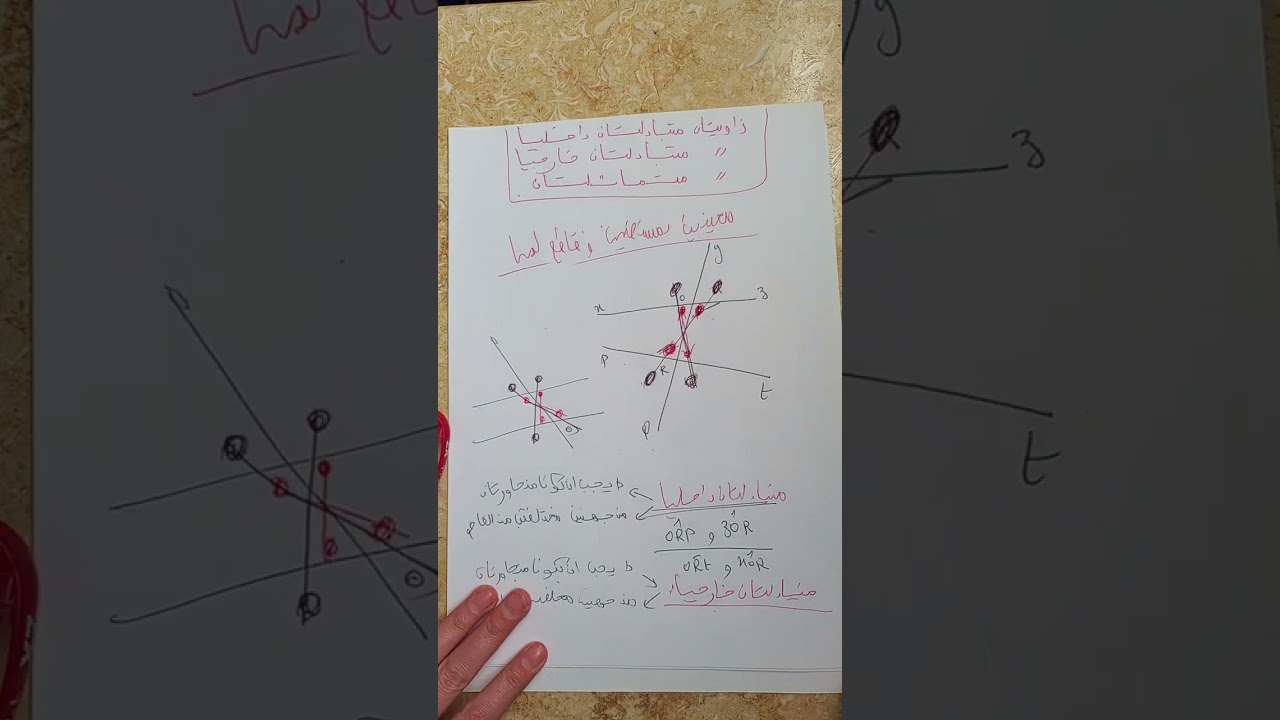 زاويتان متبادلتان داخليا
〃 متبادلتان خارجيا
〃 متماثلتان
معيزتين لمستقيمين وقاطع لهما
y
x
O
z
P
R
t
p
متبادلتان داخليا
لا يجب ان تكونا متجاورتان
من جهتين مختلفتين من القاطع
ORP و zOR
ORt و xOR
متبادلتان خارجيا
لا يجب ان تكونا متجاورتان
من جهتين